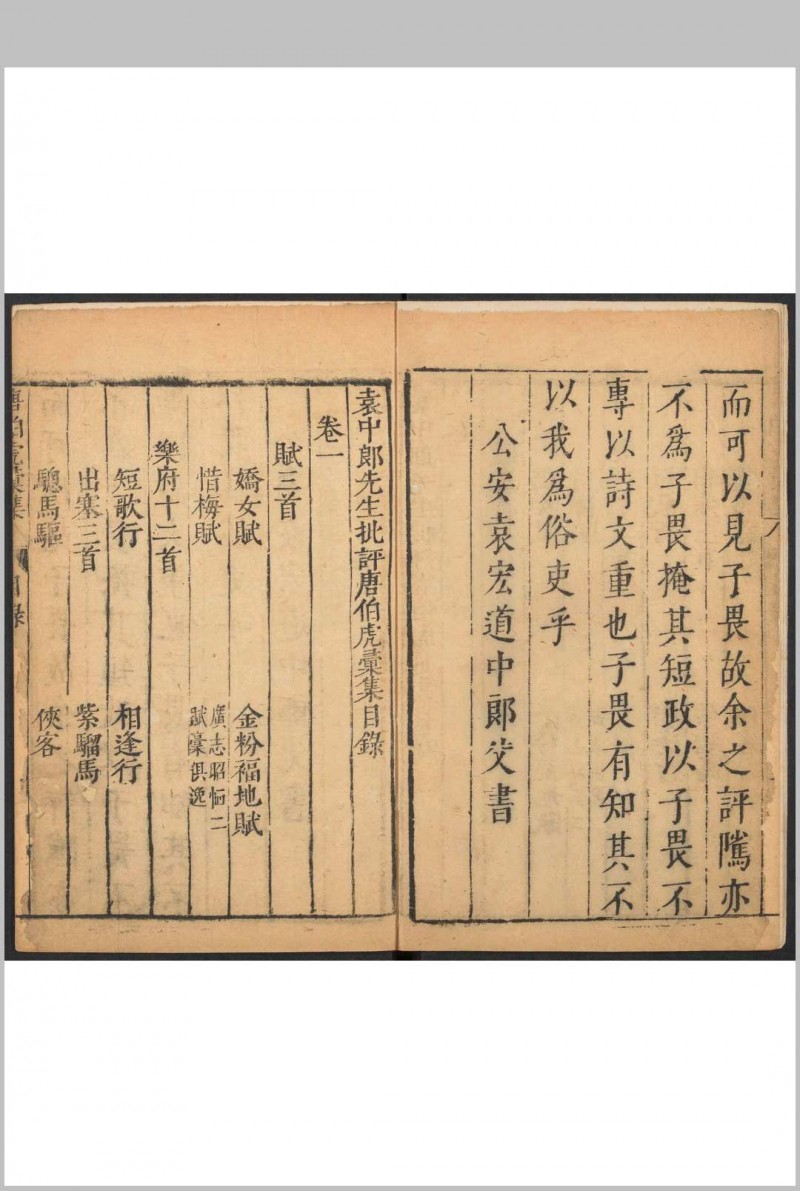 而可以見子畏故余之評隲亦
不爲子畏掩其短政以子畏不
專以詩文重也子畏有知其不
以我爲俗吏乎
公安袁宏道中郎父書
袁中郎先生批評唐伯虎彙集目錄
卷一
賦三首
嬌女賦 金粉福地賦
惜梅賦 廣志昭恤二
賦藁俱逸
樂府十二首
短歌行 相逢行
出塞三首 紫騮馬
驄馬驅 俠客
唐伯虎彙集 目錄